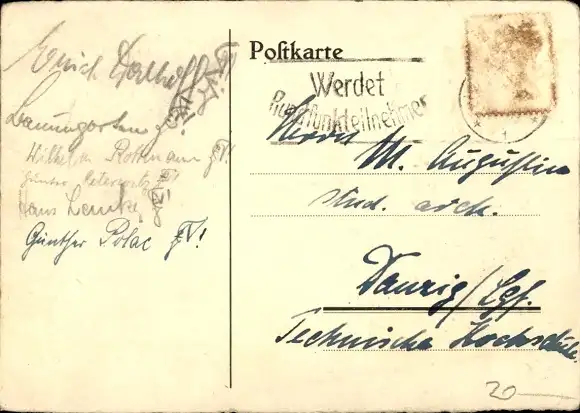 Erich Dallhoff
Baumgarten
Wilhelm Rottmann
Günter
Hans Lemke
Günther Polac
Postkarte
Werdet
Rundfunkteilnehmer
Herrn
M. Augustin
stud. arch.
Danzig/Lgf.
Technische Hochschule.
20